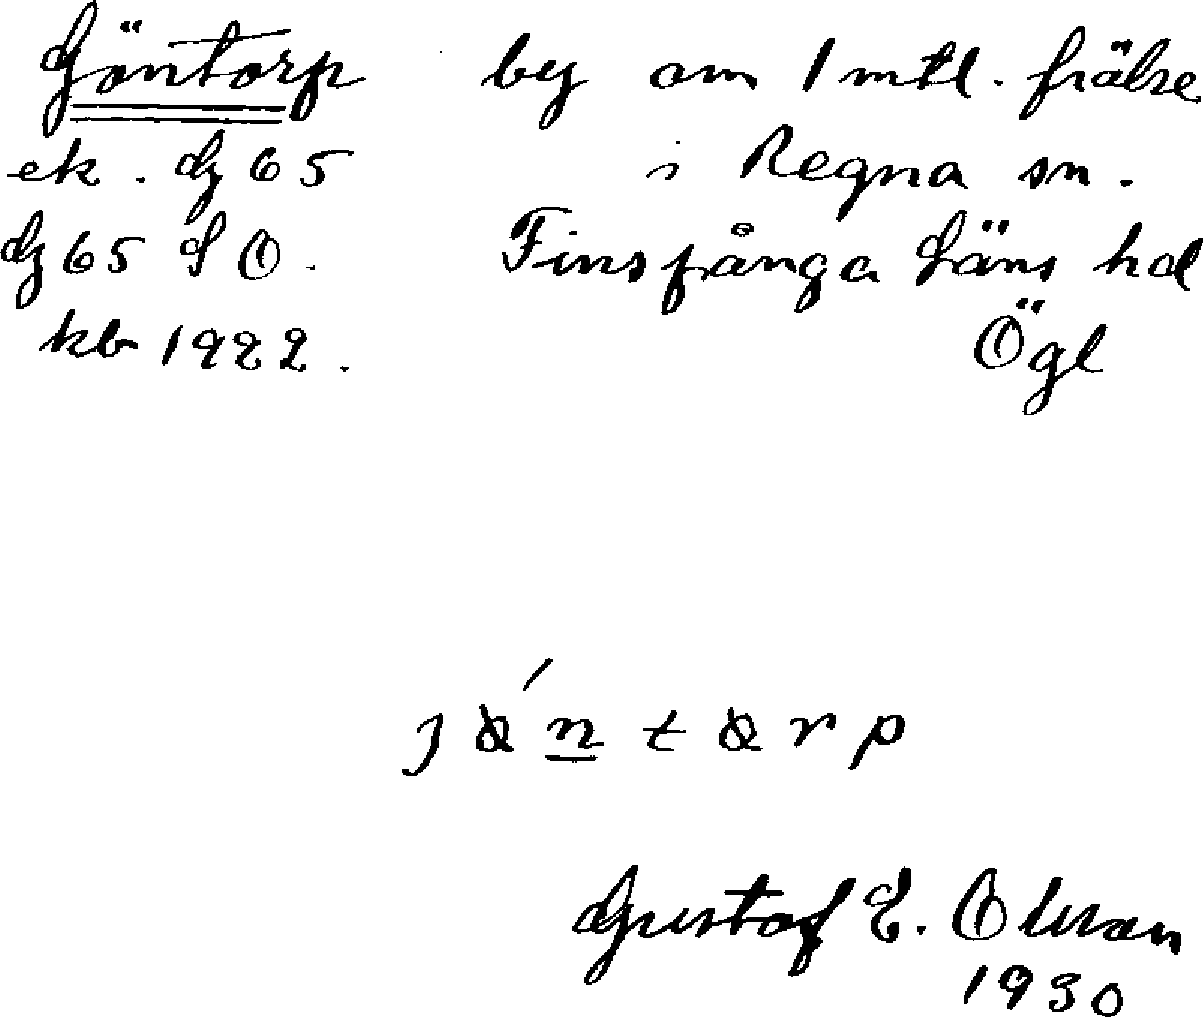 Göntorp by om 1 mtl. frälse
ek. dz 65 i Regna sn.
dz 65 SO. Finspånga läns hd
kb 1922. Ögl
Gustaf E. Olsson
1930